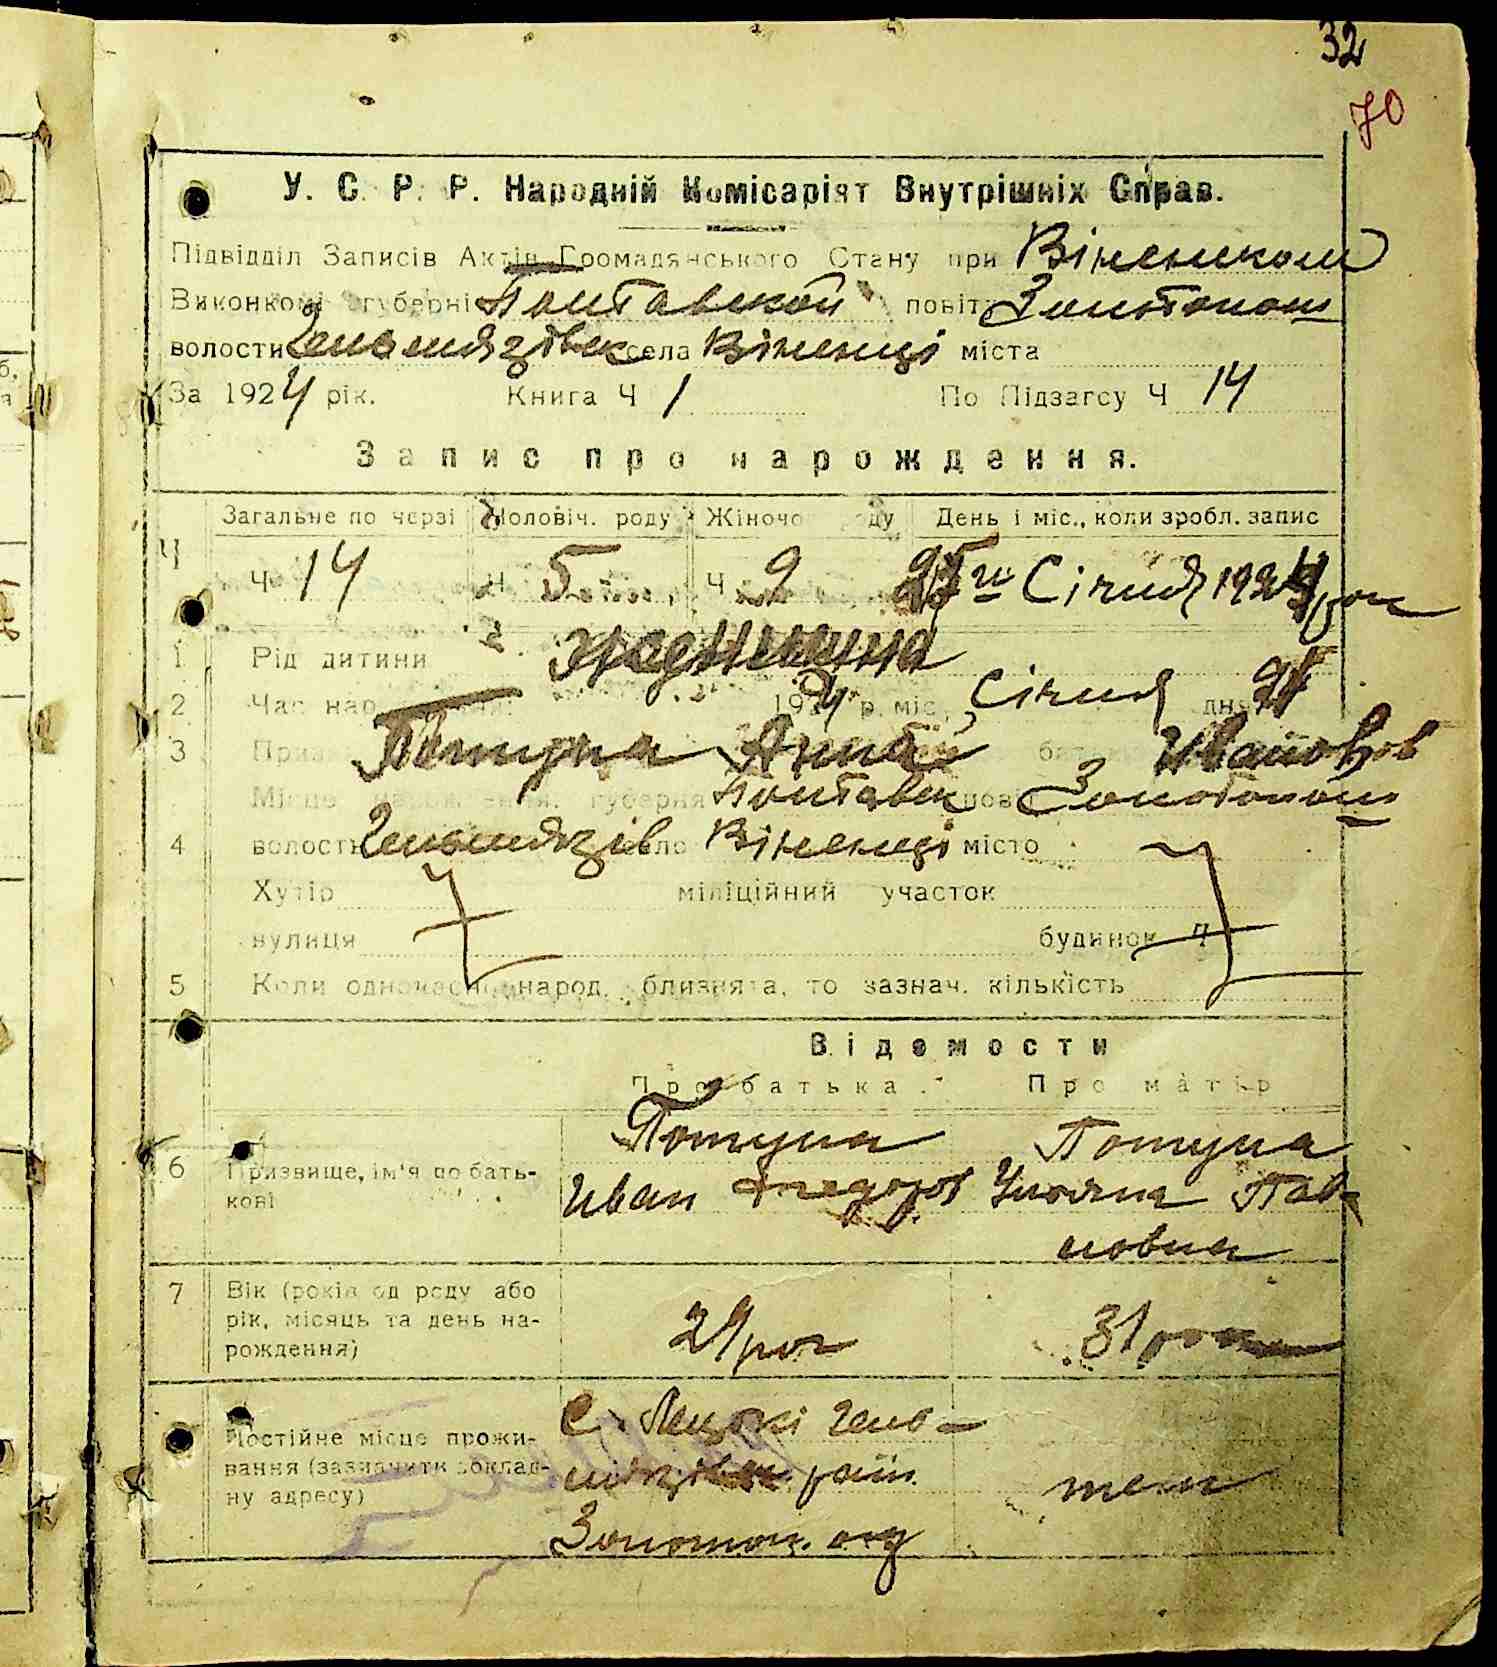 32
70
У. С. Р. Р. Народній Комісаріят Внутрішніх Справ.
Підвідділ Записів Актів Громадянського Стану при
Виконкомі губерні Полтавской повіт Золотонош
волости села Віненці міста
За 1924 рік. Книга Ч 1 По Підзагсу Ч 14
Запис про народження.
Загальне по черзі Чоловіч. роду Жіночо роду День і міс., коли зробл. запис
Ч Ч 14 Ч 5 Ч 9 25го Січня 1924 рок
1 Рід дитини
2 Час нар 1924 р. міс. Січня дня
3 Иванов
Місце народження: губерня Полтавск Золотонош
4 волость село Віненці місто
Хутір міліційний участок
вулиця будинок Ч
5 Коли одночасно народ. близнята, то зазнач. кількість
Відомости
Про батька Про матір
6 Призвище, ім'я по бать-
кові
Иван Федоров Уляна Пав-
ловна
7 Вік (років од роду або
рік, місяць та день на-
рождення)
29 рок 31 рок
Постійне місце прожи-
вання (зазначити доклад-
ну адресу)
С. Гель-
мязівск. район
Золотон. окр
теж